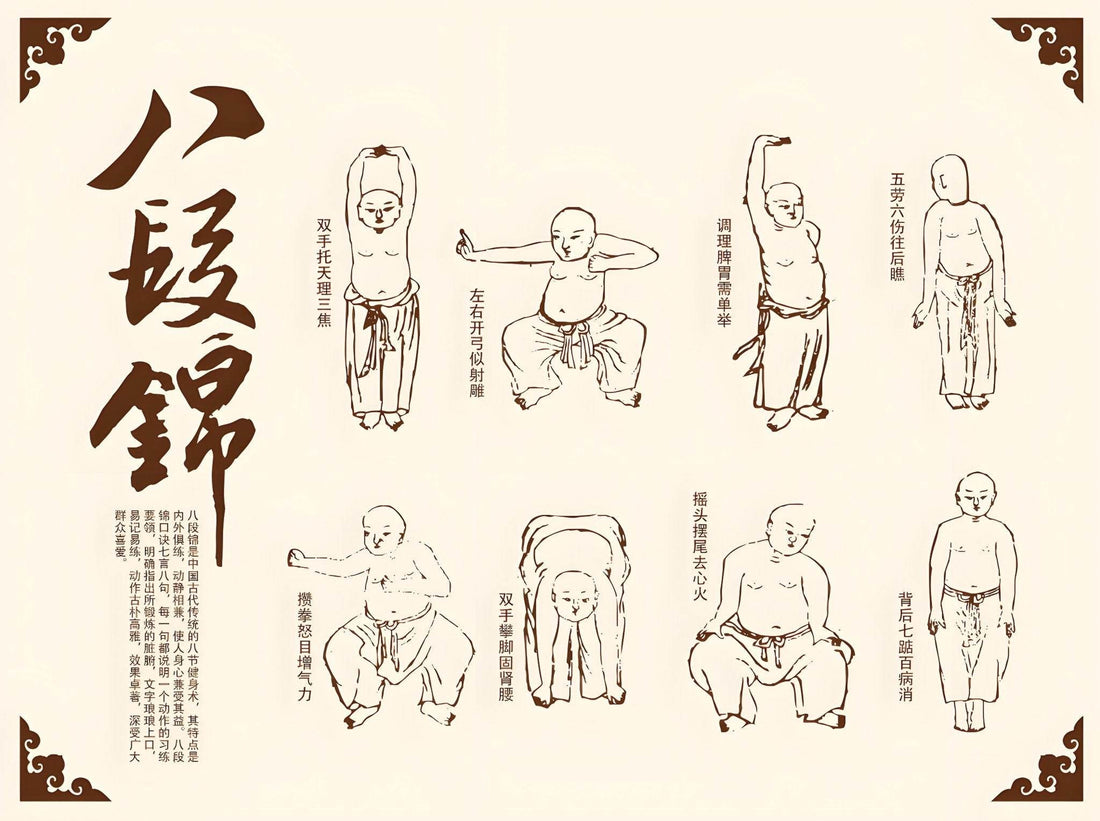 八段锦
八段锦是中国古代传统的八节健身术，其特点是
内外俱练，动静相兼，使人身心兼受其益。八段
锦口诀七言八句，每一句都说明一个动作的习练
要领，明确指出所锻炼的脏腑，文字琅琅上口，
易记易练，动作古朴高雅，效果卓著，深受广大
群众喜爱。
双手托天理三焦
左右开弓似射雕
调理脾胃需单举
五劳六伤往后瞧
攒拳怒目增气力
双手攀脚固肾腰
摇头摆尾去心火
背后七踮百病消